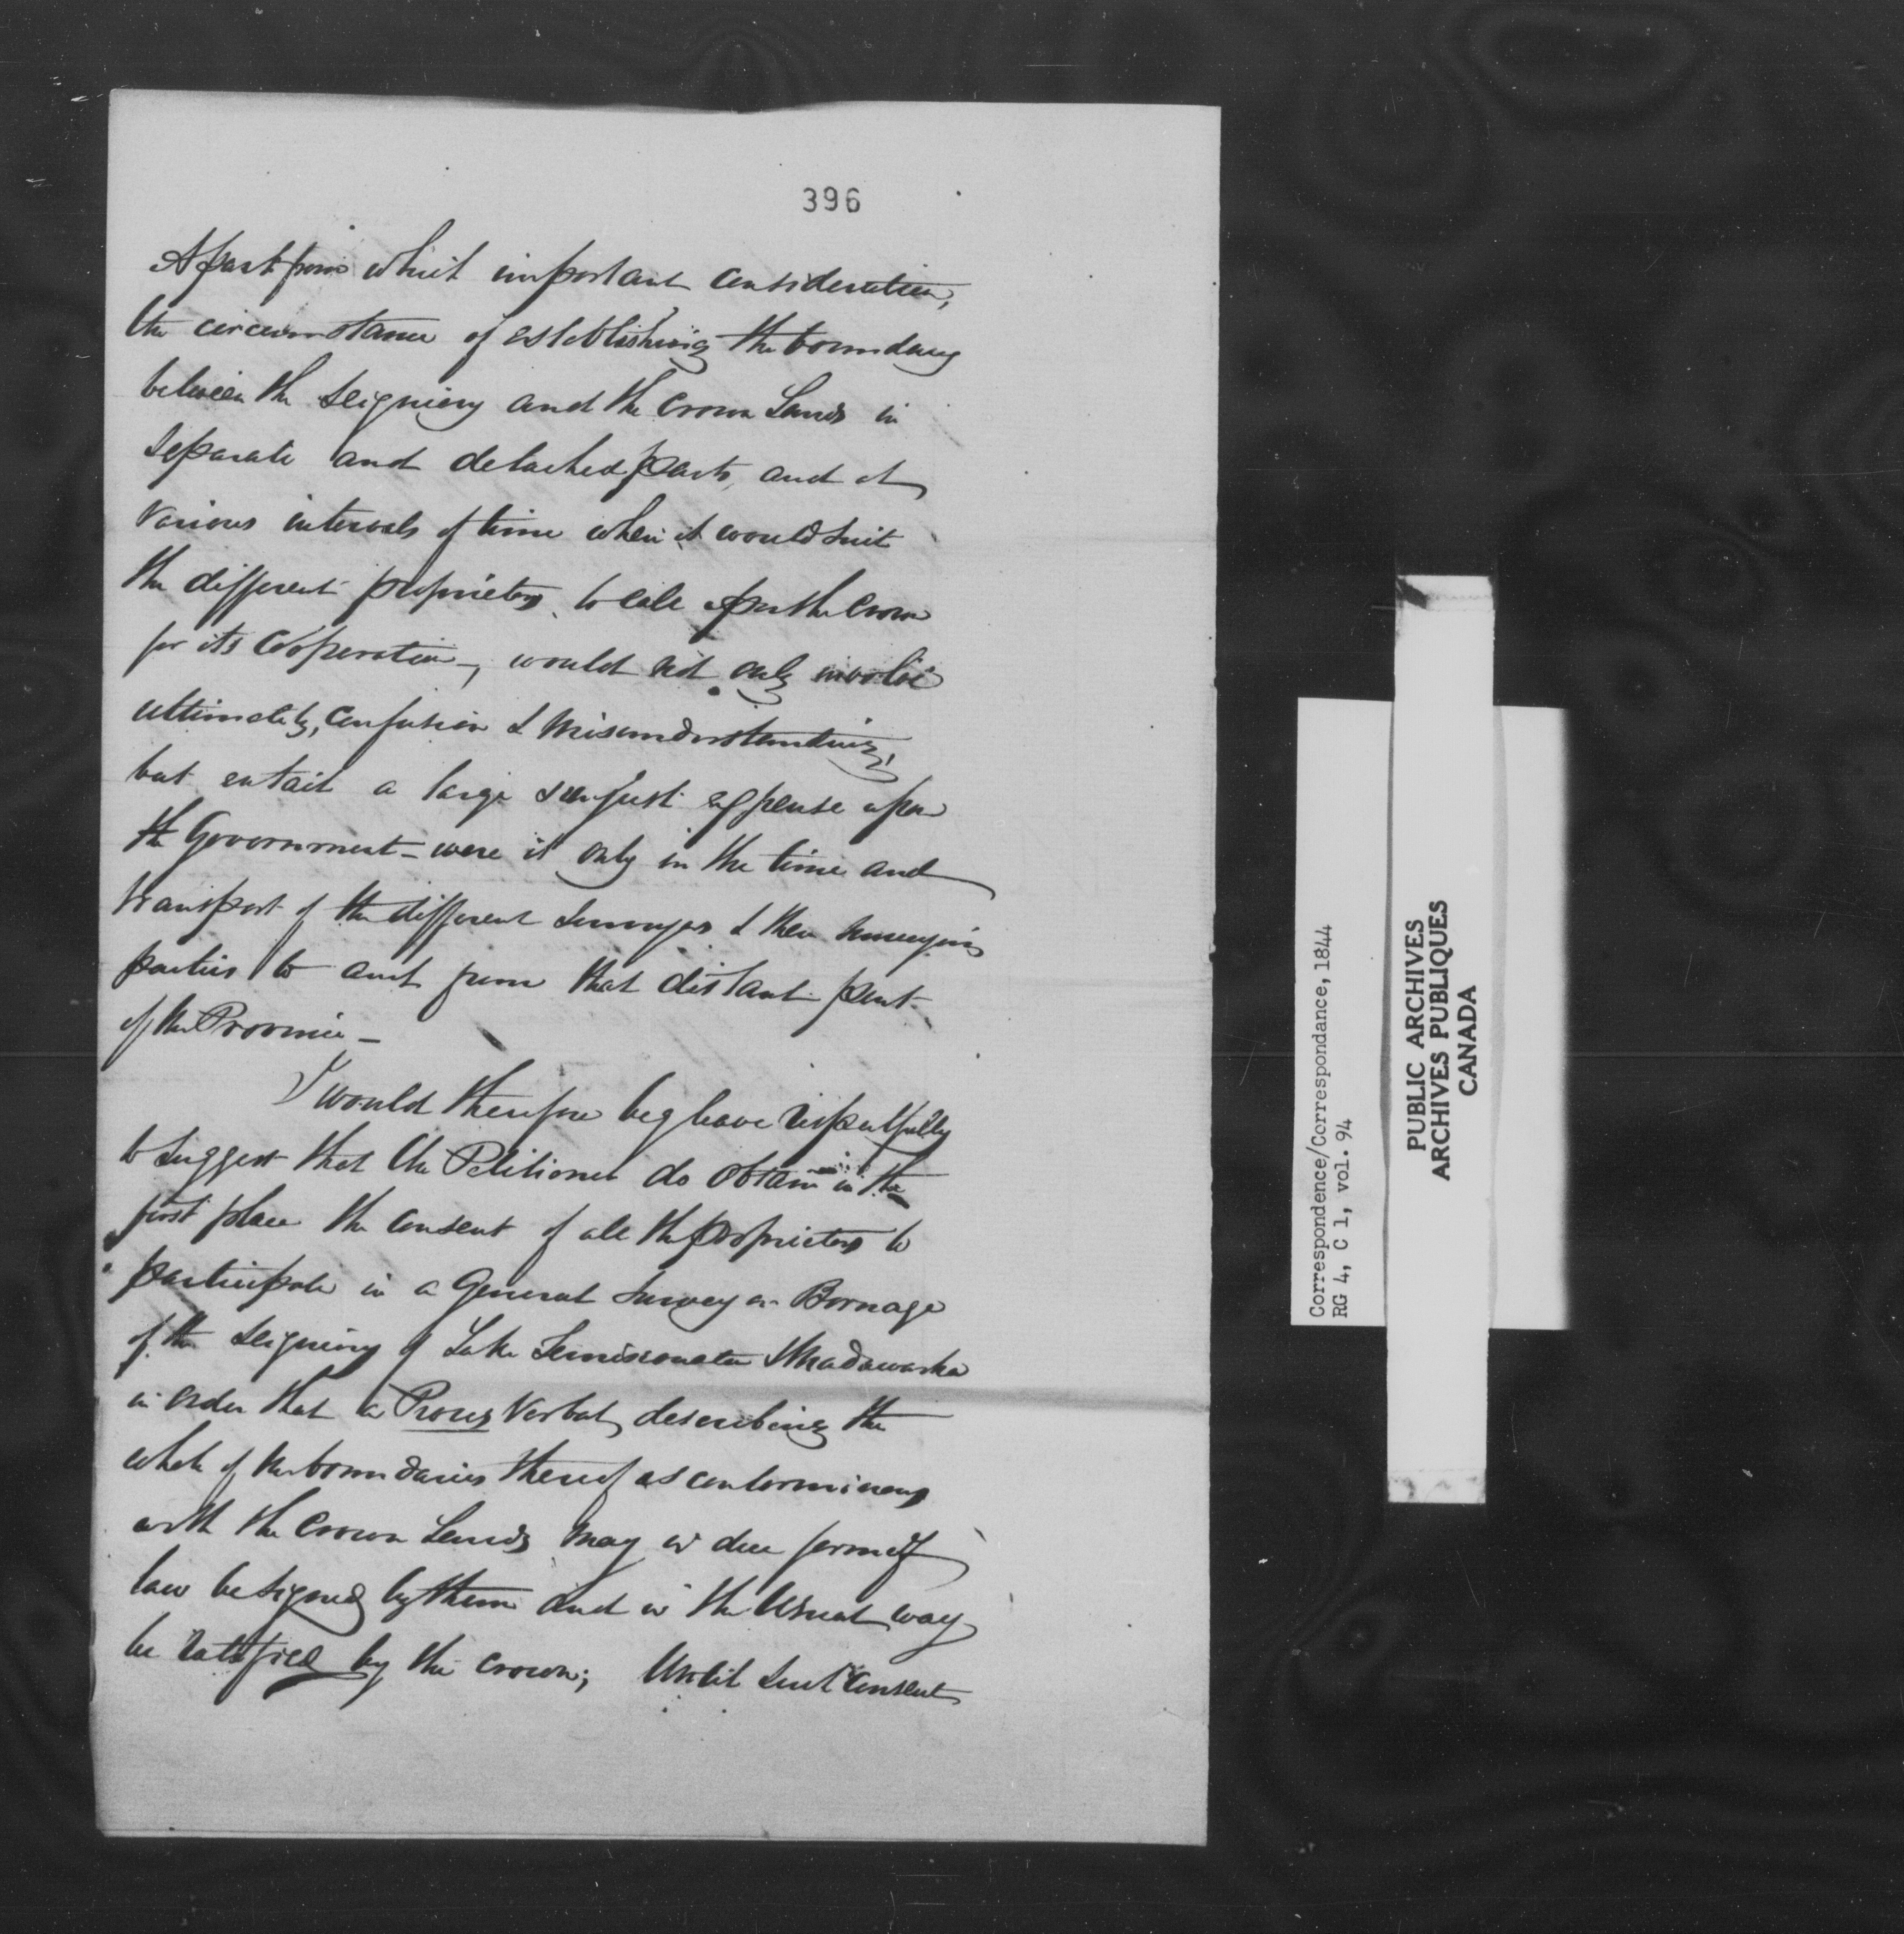 396
Apart from which important consideration,
the circumstance of establishing the boundary
between the Seigniory and the Crown Lands in
separate and detached parts, and at
various intervals of time when it would suit
the different proprietors to call upon the Crown
for its Cooperation, would not only involve
ultimately, Confusion & Misunderstanding,
but entail a large & unjust expense upon
the Government – were it only in the time and
transport of the different Surveyors & their Surveying
parties to and from that distant part
of the Province –
I would therefore beg leave respectfully
to suggest that the Petitioner do obtain in the
first place the Consent of all the proprietors to
participate in a General Survey or Bornage
of the Seigniory of Lake Temisconata & Madawaska
in order that a Proces Verbal, describing the
whole of the boundaries thereof as conterminous
with the Crown Lands may in due form of
law be signed by them and in the Usual way
be ratified by the Crown; Until such Consent
Correspondence/Correspondance, 1844
RG 4, C 1, vol. 94
PUBLIC ARCHIVES
ARCHIVES PUBLIQUES
CANADA